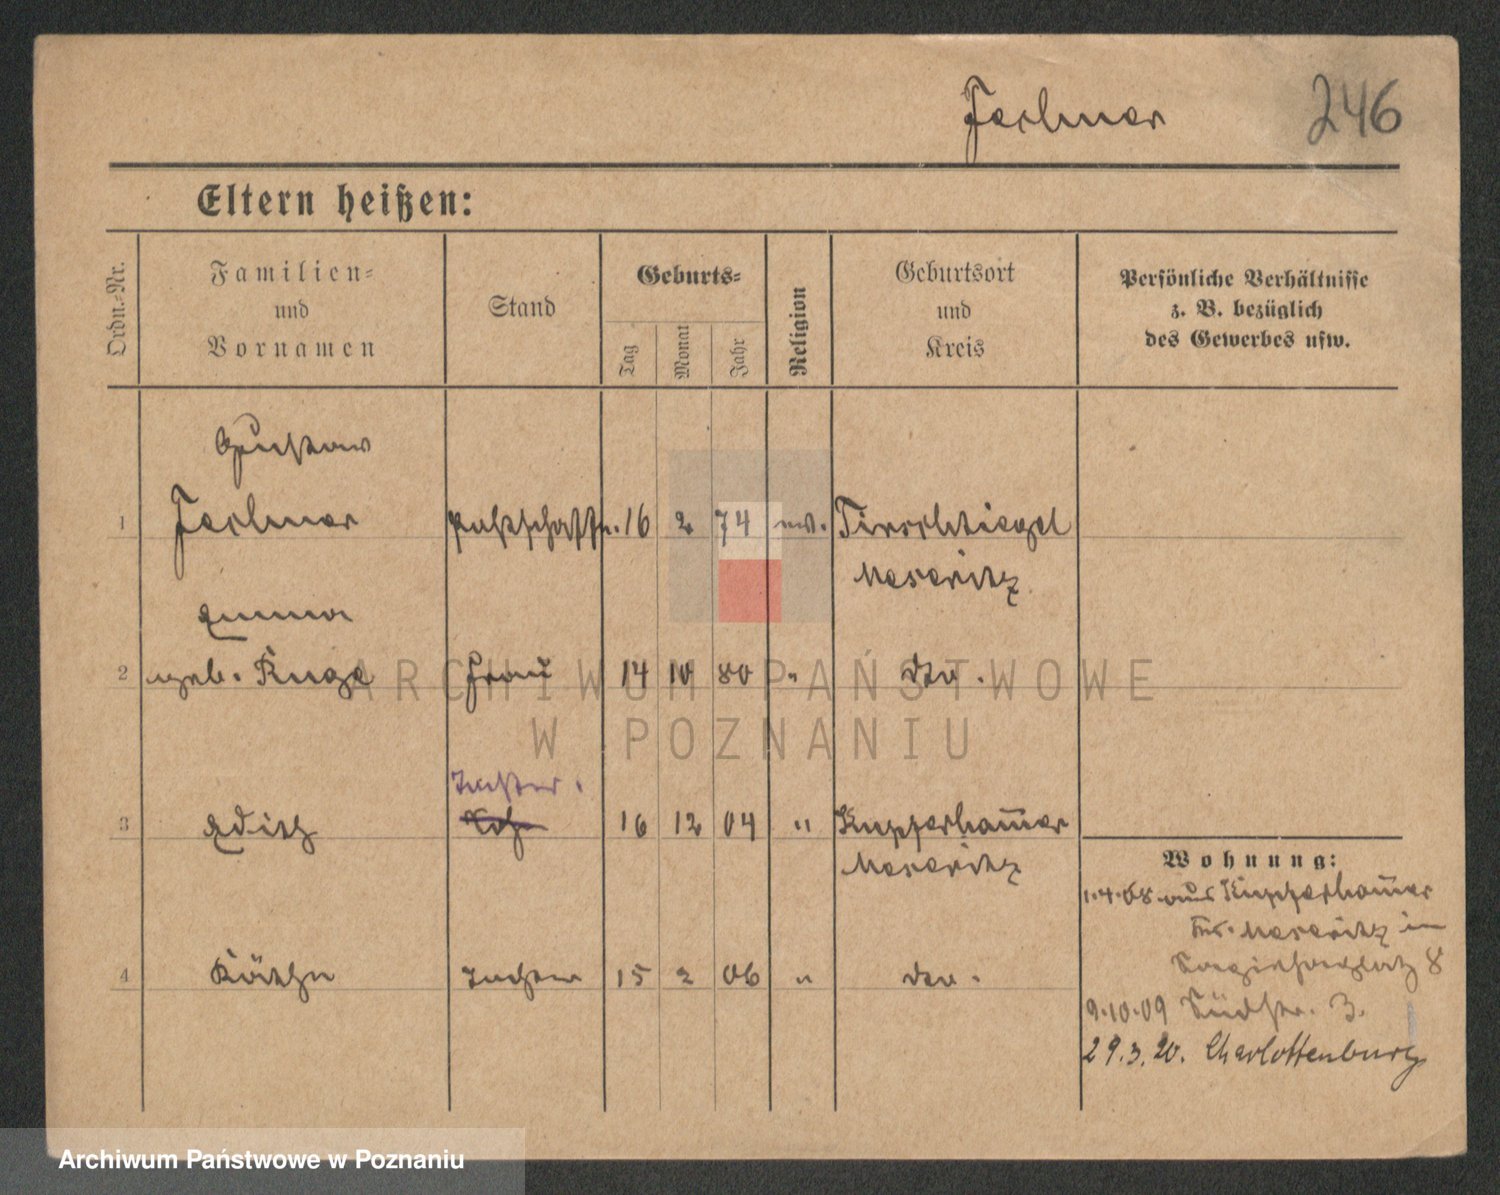 Fechner 246
Eltern heißen:
Ordn.-Nr.
Familien-
und
Vornamen
Stand
Geburts-
Tag
Monat
Jahr
Religion
Geburtsort
und
Kreis
Persönliche Verhältnisse
z. B. bezüglich
des Gewerbes usw.
Gustav
1 Postschaffn. 16 2 74 ev. Tirschtiegel
Meseritz
Emma
2 geb. Kuge Frau 14 10 80 " do.
Tochter.
3 Edith 16 12 04 " Kupferham̄er
Meseritz
4 Käthe Tochter 15 2 06 " do.
Wohnung:
1.4.08 aus Kupferham̄er
Krs. Meseritz in
8
9.10.09 Südstr. 3.
29.3.20. Charlottenburg
ARCHIWUM PAŃSTWOWE
W POZNANIU
Archiwum Państwowe w Poznaniu